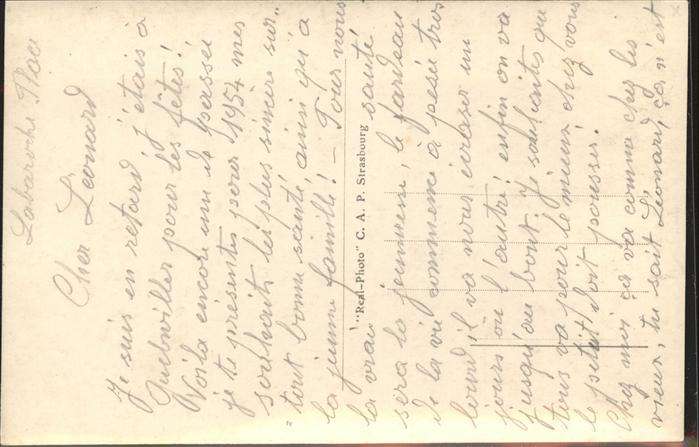 Labaroche Place
Cher Léonard
Je suis en retard j'étais à
Guebwiller pour les fêtes!
Voilà encore une de passée
je te présentes pour 1954 mes
souhaits les plus sincère sur-
-tout bonne santé ainsi qu'à
la jeune famille! - Pour nous
la vrai santé
sera la jeunesse, le fardeau
de la vie commence à pesé très
lourd il va nous écraser un
jours où l'autre enfin on va
jusqu'au bout. Je souhaites que
tous va pour le mieux chez vous
le petit doit pousser.
Chez moi ça va comme chez les
vieux, tu sait Léonard, ça n'est
"Real-Photo" C. A. P. Strasbourg